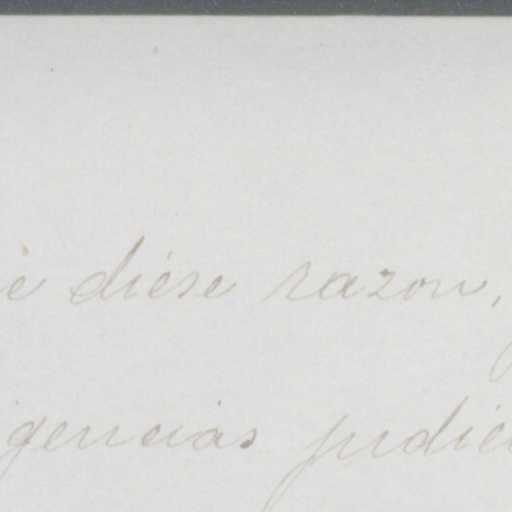 e diese razon,
igencias judici